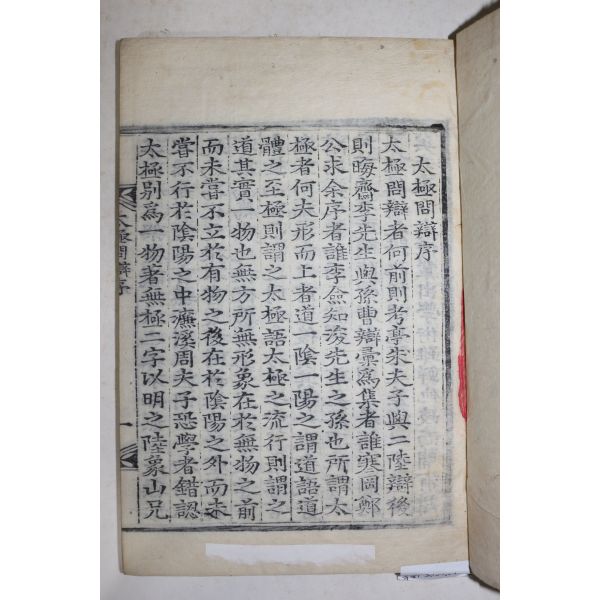 太極問辯序
太極問辯者何前則考亭朱夫子與二陸辯後
則晦齋李先生與孫曹辯彙爲集者誰寒岡鄭
公求余序者誰李僉知浚先生之孫也所謂太
極者何夫形而上者道一陰一陽之謂道語道
體之至極則謂之太極語太極之流行則謂之
道其實一物也無方所無形象在於無物之前
而未嘗不立於有物之後在於陰陽之外而未
嘗不行於陰陽之中濂溪周夫子恐學者錯認
太極別爲一物者無極二字以明之陸象山兄
太極問辯序
一